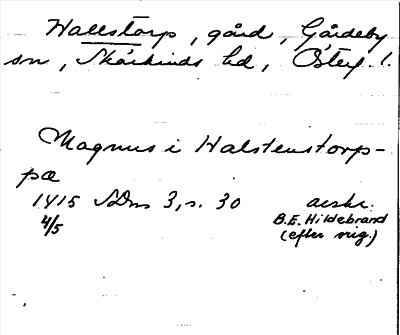 Hallstorp, gård, Gårdeby
sn, Skärkinds hd, Österg. l.
Magnus i Halstenstorp-
pæ
1415 SDns 3, s. 30 avskr.
4/5 B.E. Hildebrand
(efter orig.)